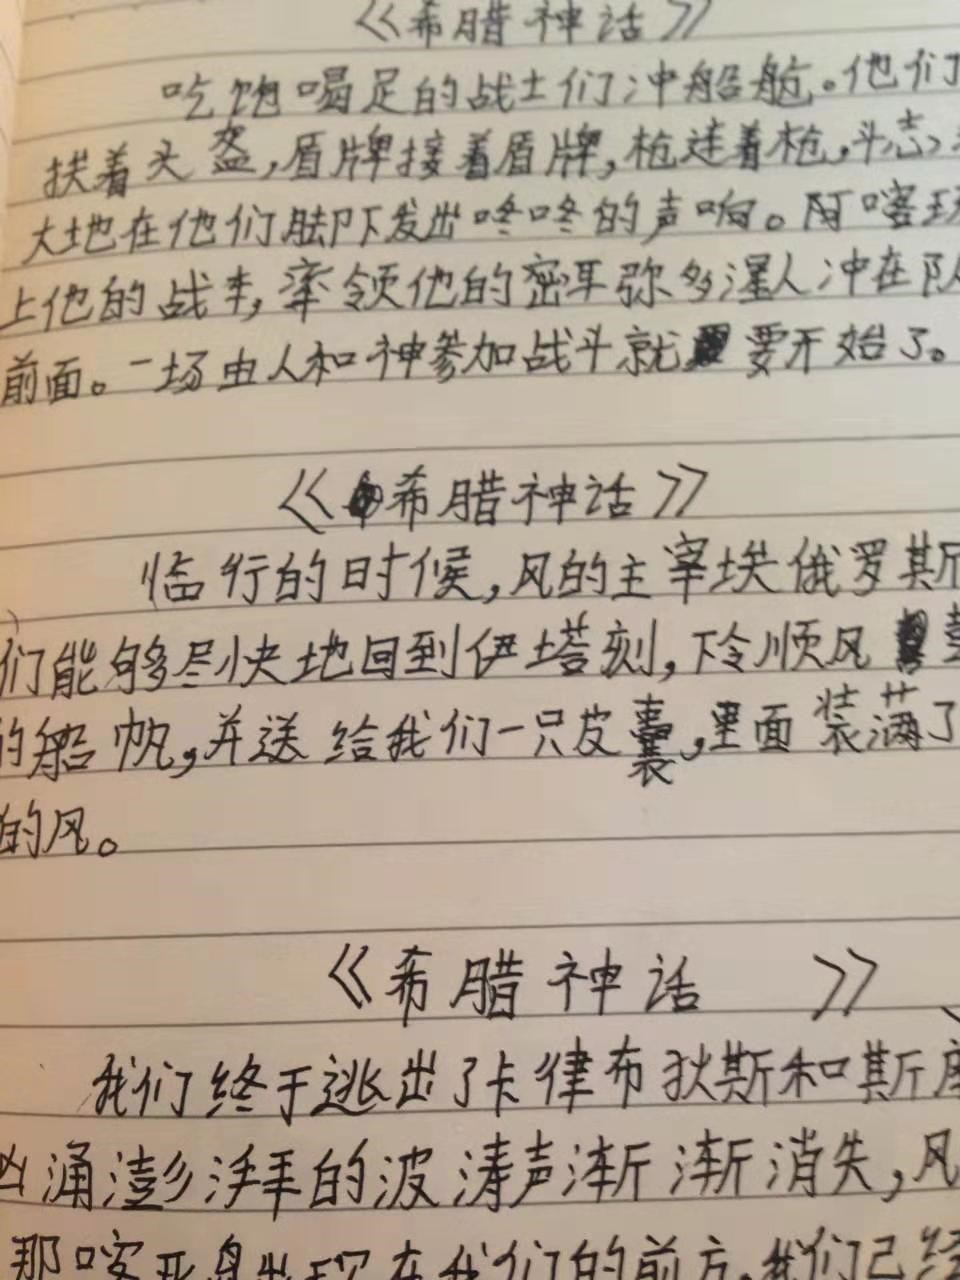 《希腊神话》
吃饱喝足的战士们冲船舷。他们
扶着头盔,盾牌接着盾牌,枪连着枪,斗志
大地在他们脚下发出咚咚的声响。阿喀琉
上他的战车,率领他的密耳弥多湦人冲在队
前面。一场由人和神参加战斗就要开始了。
《希腊神话》
临行的时候,风的主宰埃俄罗斯
们能够尽快地回到伊塔刻,下令顺风
的船帆,并送给我们一只皮囊,里面装满了
的风。
《希腊神话》
我们终于逃出了卡律布狄斯和斯库
涌澎湃的波涛声渐渐消失,风
那喀死岛出现在我们的前方。我们已经